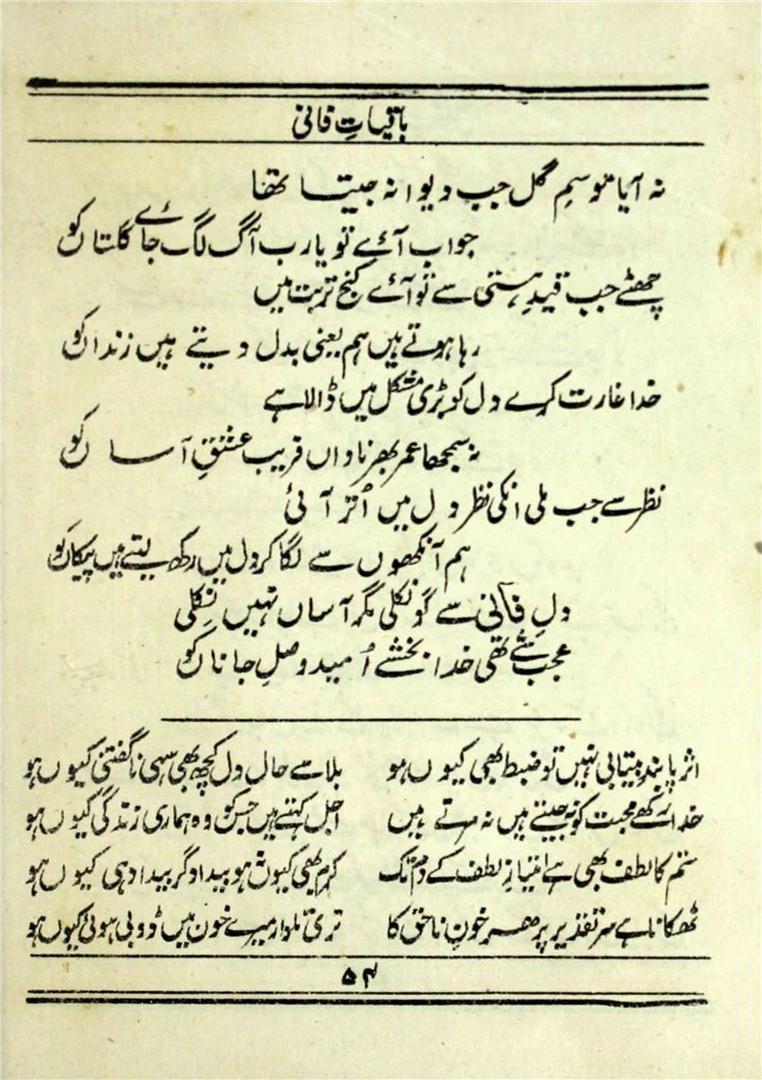 باقیاتِ فانی
نہ آیا موسمِ گل جب دیوانہ جیتا تھا
جو اب آئے تو یارب آگ لگ جائے گلستاں کو
چھٹے جب قیدِ ہستی سے تو آئے کنجِ تربت میں
رہا ہوتے ہیں ہم یعنی بدل دیتے ہیں زنداں کو
خدا غارت کرے دل کو بڑی مشکل میں ڈالا ہے
نہ سمجھا عمر بھر ناداں فریبِ عشقِ آساں کو
نظر سے جب ملی انکی نظر دل میں اُتر آئی
ہم آنکھوں سے لگا کر دل میں رکھ لیتے ہیں پیکاں کو
دلِ فانی سے گو نکلی مگر آساں نہیں نکلی
عجب شے تھی خدا بخشے اُمیدِ وصلِ جاناں کو
اثر پابندِ بیتابی نہیں تو ضبط بھی کیوں ہو بلا سے حال دل کچھ بھی سہی ناگفتنی کیوں ہو
خدا رکھے محبت کو نہ جیتے ہیں نہ مرتے ہیں اجل کہتے ہیں جس کو وہ ہماری زندگی کیوں ہو
ستم کا لطف بھی ہے امتیازِ لطف کے دم تک کرم بھی کیوں نہ ہو بیدادگر بیداد ہی کیوں ہو
ٹھکانا ہے سرِ تقدیر پر پھر خونِ ناحق کا تری تلوار میرے خون میں ڈوبی ہوئی کیوں ہو
۵۴